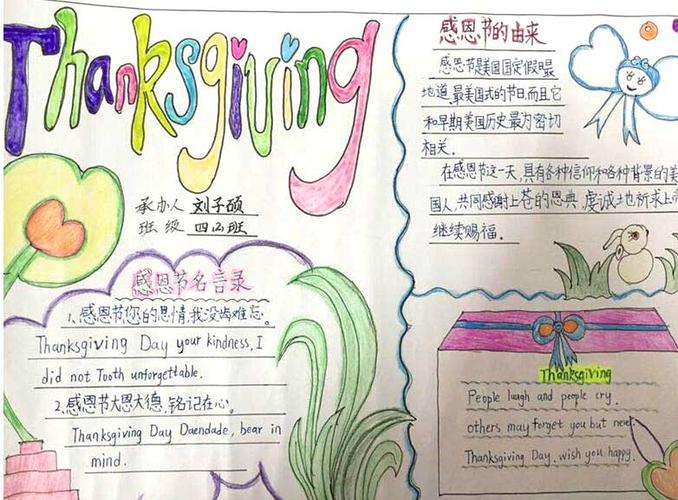 Thanksgiving
承办人 刘子硕
班级 四(2)班
感恩节名言录
1、感恩节您的恩情我没齿难忘。
Thanksgiving Day your kindness, I
did not Tooth unforgettable.
2、感恩节大恩大德,铭记在心。
Thanksgiving Day Daendade, bear in
mind.
感恩节的由来
感恩节是美国国定假日最
地道、最美国式的节日,而且它
和早期美国历史最为密切
相关。
在感恩节这一天,具有各种信仰和各种背景的美
国人,共同感谢上苍的恩典,虔诚地祈求上帝
继续赐福。
Thanksgiving
People laugh and people cry.
others may forget you but never.
Thanksgiving Day. wish you happy.